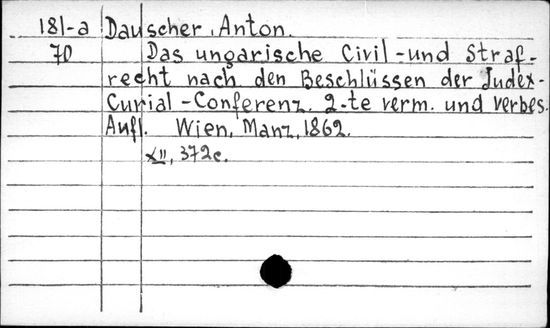 181-a Dauscher, Anton.
70 Das ungarische Civil-und Straf-
recht nach den Beschlüssen der Judex-
Curial-Conferenz. 2-te verm. und verbes.
Aufl. Wien, Manz, 1862.
XII, 372c.